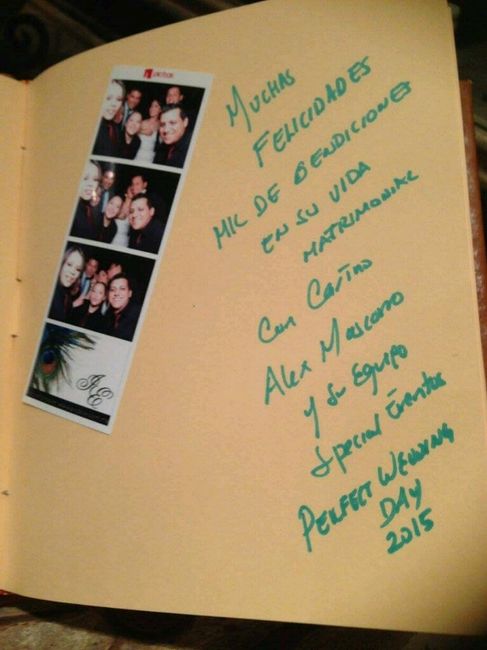 MUCHAS
FELICIDADES
MIL DE BENDICIONES
EN SU VIDA
MATRIMONIAL
Con Cariño
Alex Moscorro
y Su Equipo
Special Eventos
PERFECT WEDDING
DAY
2015
JE